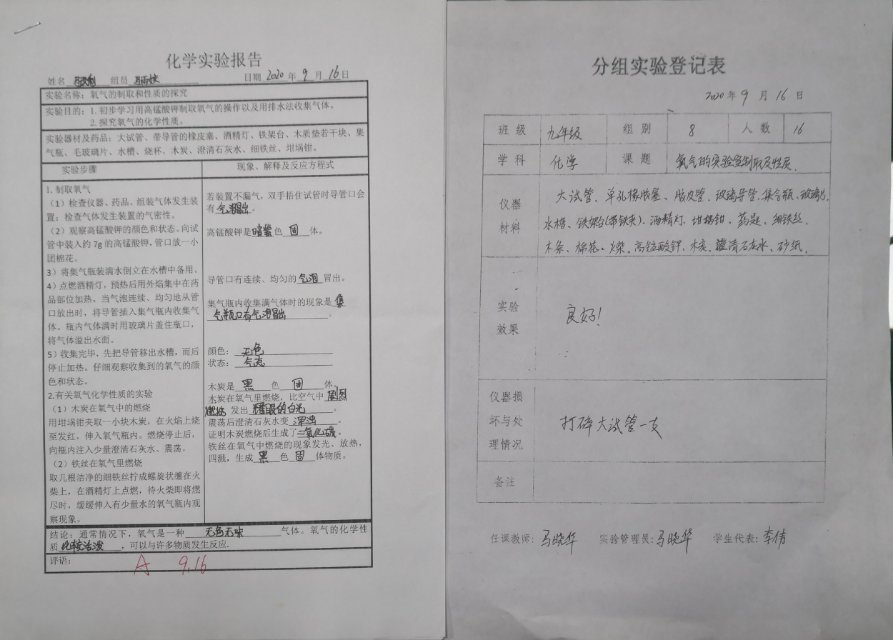 化学实验报告
姓名 组员 日期 2020 年 9 月 16 日
实验名称：氧气的制取和性质的探究
实验目的：1.初步学习用高锰酸钾制取氧气的操作以及用排水法收集气体。
2.探究氧气的化学性质。
实验器材及药品：大试管、带导管的橡皮塞、酒精灯、铁架台、木质垫若干块、集
气瓶、毛玻璃片、水槽、烧杯、木炭、澄清石灰水、细铁丝、坩埚钳。
实验步骤 现象、解释及反应方程式
1.制取氧气
（1）检查仪器、药品、组装气体发生装
置；检查气体发生装置的气密性。
（2）观察高锰酸钾的颜色和状态。向试
管中装入约7g的高锰酸钾，管口放一小
团棉花。
3）将集气瓶装满水倒立在水槽中备用。
4）点燃酒精灯，预热后用外焰集中在药
品部位加热，当气泡连续、均匀地从管
口放出时，将导管插入集气瓶内收集气
体。瓶内气体满时用玻璃片盖住瓶口，
将气体溢出水面。
5）收集完毕，先把导管移出水槽，而后
停止加热。仔细观察收集到的氧气的颜
色和状态。
2.有关氧气化学性质的实验
（1）木炭在氧气中的燃烧
用坩埚钳夹取一小块木炭，在火焰上烧
至发红，伸入氧气瓶内。燃烧停止后，
向瓶内注入少量澄清石灰水、震荡。
（2）铁丝在氧气里燃烧
取几根洁净的细铁丝拧成螺旋状缠在火
柴上，在酒精灯上点燃，待火柴即将燃
尽时，缓缓伸入有少量水的氧气瓶内观
察现象。
若装置不漏气，双手捂住试管时导管口会
有气泡冒出。
高锰酸钾是暗紫色 固 体。
导管口有连续、均匀的气泡冒出。
集气瓶内收集满气体时的现象是集
气瓶口有气泡冒出
颜色：无色
状态：气态
木炭是 黑 色 固 体。
木炭在氧气里燃烧，比空气中剧烈
燃烧 发出 耀眼的白光 。
震荡后澄清石灰水变 浑浊 。
证明木炭燃烧后生成了二氧化碳。
铁丝在氧气中燃烧的现象发光、放热，
四溅，生成 黑 色 固 体物质。
结论：通常情况下，氧气是一种 无色无味 气体。氧气的化学性
质 比较活泼 ，可以与许多物质发生反应.
评语： A 9.16
分组实验登记表
2020 年 9 月 16 日
班 级 九年级 组 别 8 人 数 16
学 科 化学 课 题 氧气的实验室制取及性质.
仪器
材料
大试管、单孔橡胶塞、胶皮管、玻璃导管、集合瓶、玻璃片、
水槽、铁架台(带铁夹)、酒精灯、坩埚钳、药匙、细铁丝、
木条、棉花、火柴、高锰酸钾、木炭、澄清石灰水、砂纸、
实验
效果
良好！
仪器损
坏与处
理情况
打碎大试管一支
备注
任课教师：马晓华 实验管理员：马晓华 学生代表：李倩